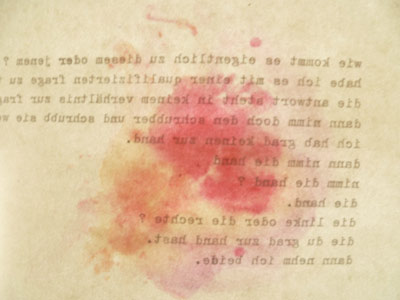 wie kommt es eigentlich zu diesem oder jenem ?
habe ich es mit einer qualifizierten frage zu
die antwort steht in keinem verhältnis zur
dann nimm doch den schrubber und schrubb sie
ich hab grad keinen zur hand.
dann nimm die hand
nimm die hand ?
die hand.
die linke oder die rechte ?
die du grad zur hand hast.
dann nehm ich beide.